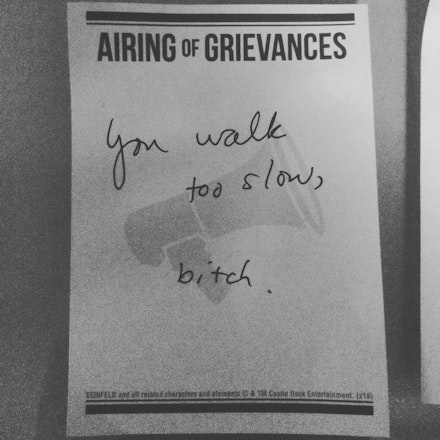 AIRING OF GRIEVANCES
You walk
too slow,
bitch.
SEINFELD and all related characters and elements © & TM Castle Rock Entertainment. (s16)